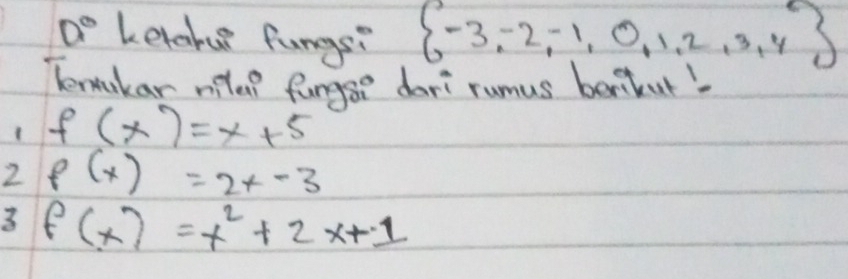 Di ketahui fungsi {-3,-2,-1, 0,1,2,3,4}
Tentukan nilai fungsi dari rumus berikut!
1 f(x)=x+5
2 f(x) =2x-3
3 f(x) =x²+2x+1